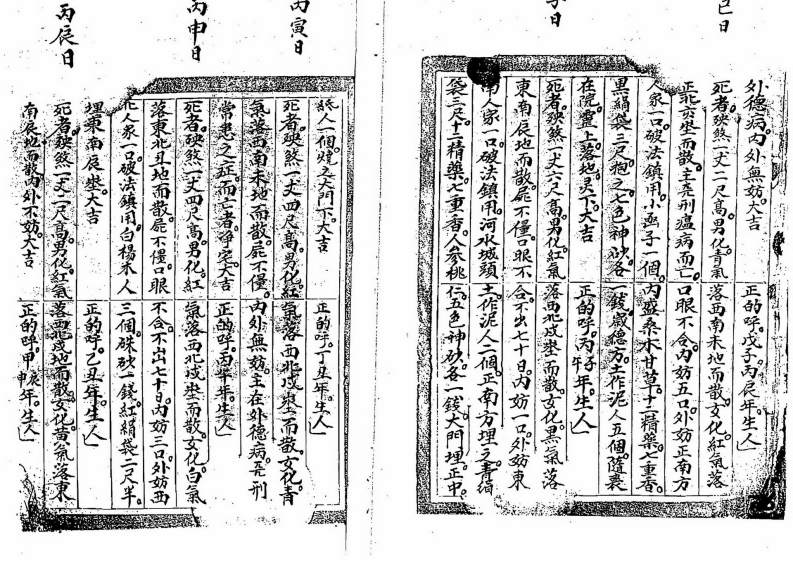 巳日
外德病内外無妨大吉 正的呼戊子丙辰年生人
死者殃煞一丈二尺高男化青氣落西南未地而散女化紅氣落
正北玄坐而散主刑瘟病而亡口眼不合内妨五口外妨正南方
人家一口破法鎮用小盃子一個内盛桑木甘草十二精藥七重香
黑絹袋三尺抱之七色神砂各一錢歲德方土作泥人五個隨裹
在院灵上落地天下大吉 正的呼丙子午年生人
子日
死者殃煞一丈六尺高男化紅氣落西北戌坐而散女化黑氣落
東南辰地而散屍不僵口眼不合不出七十日内妨一口外妨東
南人家一口破法鎮用河水城頭土作泥人二個正南方埋之青絹
袋三尺十二精藥七重香人參桃仁五色神砂各一錢大門埋正中
紙人一個燒之大門下大吉 正的呼丁丑年生人
丙寅日
死者殃煞一丈四尺高男化紅氣落西北戌坐而散女化青
氣落西南未地而散屍不僵内外無妨主在外德病刑
常患之症而亡者净宅大吉 正的呼丙午年生人
丙申日
死者殃煞一丈四尺高男化紅氣落西北戌坐而散女化白氣
落東北丑地而散屍不僵口眼不合不出七十日内妨三口外妨西
北人家一口破法鎮用白楊木人三個硃砂一錢紅絹袋二尺半
埋東南辰坐大吉 正的呼乙丑年生人
丙辰日
死者殃煞一丈一尺高男化紅氣落西北戌地而散女化黄氣落東
南辰地而散内外不妨大吉 正的呼甲申辰年生人